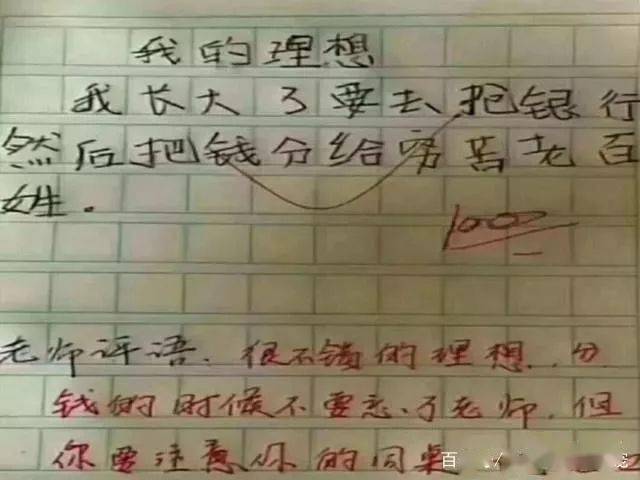 我的理想
我长大了要去抢银行
然后把钱分给穷苦老百
姓。
100
老师评语.很不错的理想..分
钱的时候不要忘了老师.但
你要注意你的同桌
百